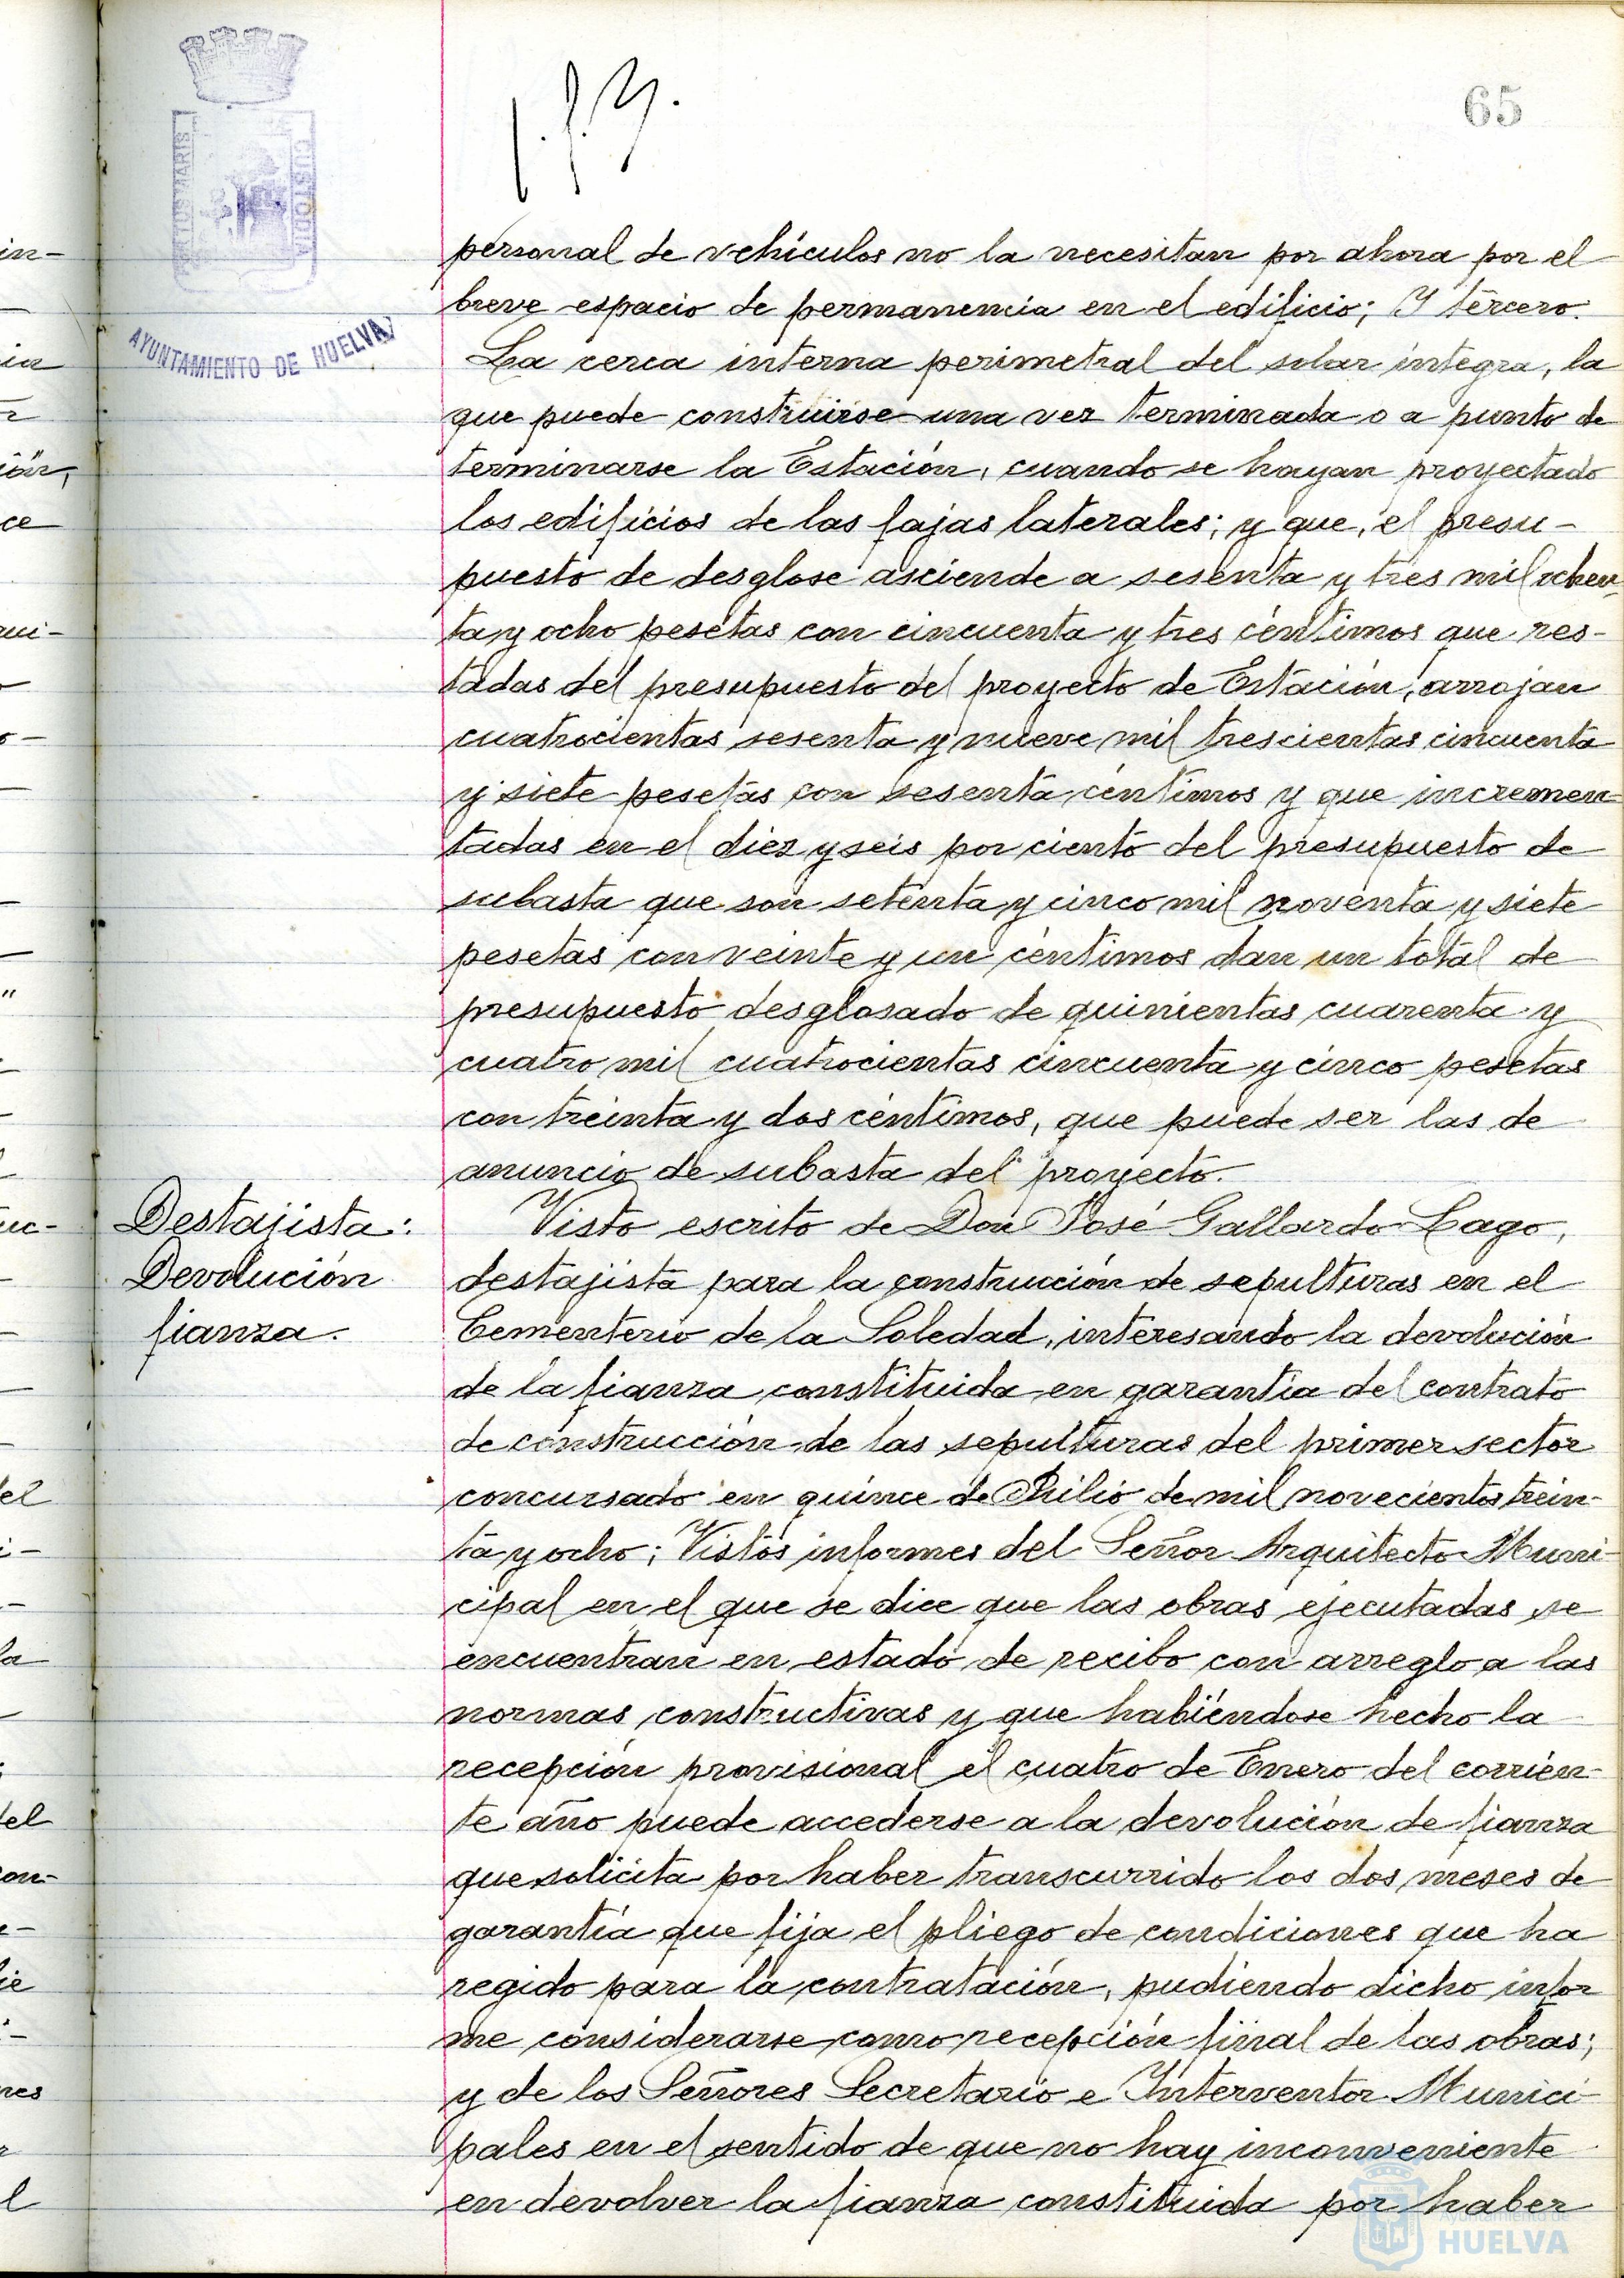 65
PORTUS MARIS
CUSTODIA
AYUNTAMIENTO DE HUELVA
personal de vehículos no la necesitan por ahora por el
breve espacio de permanencia en el edificio; Y tercero.
La cerca interna perimetral del solar íntegra, la
que puede construirse una vez terminada o a punto de
terminarse la Estación, cuando se hayan proyectado
los edificios de las fajas laterales; y que, el presu-
puesto de desglose asciende a sesenta y tres mil ochen-
ta y ocho pesetas con cincuenta y tres céntimos que res-
tadas del presupuesto del proyecto de Estación, arrojan
cuatrocientas sesenta y nueve mil trescientas cincuenta
y siete pesetas con sesenta céntimos y que incremen-
tadas en el diez y seis por ciento del presupuesto de
subasta que son setenta y cinco mil noventa y siete
pesetas con veinte y un céntimos dan un total de
presupuesto desglosado de quinientas cuarenta y
cuatro mil cuatrocientas cincuenta y cinco pesetas
con treinta y dos céntimos, que puede ser las de
anuncio de subasta del proyecto.
Destajista:
Devolución
fianza.
Visto escrito de Don José Gallardo Lago,
destajista para la construcción de sepulturas en el
Cementerio de la Soledad, interesando la devolución
de la fianza constituida en garantía del contrato
de construcción de las sepulturas del primer sector
concursado en quince de Julio de mil novecientos trein-
ta y ocho; Vistos informes del Señor Arquitecto Muni-
cipal en el que se dice que las obras ejecutadas se
encuentran en estado de recibo con arreglo a las
normas constructivas y que habiéndose hecho la
recepción provisional el cuatro de Enero del corrien-
te año puede accederse a la devolución de fianza
que solicita por haber transcurrido los dos meses de
garantía que fija el pliego de condiciones que ha
regido para la contratación, pudiendo dicho infor
me considerarse como recepción final de las obras;
y de los Señores Secretario e Interventor Munici-
pales en el sentido de que no hay inconveniente
en devolver la fianza constituida por haber
Ayuntamiento de
HUELVA